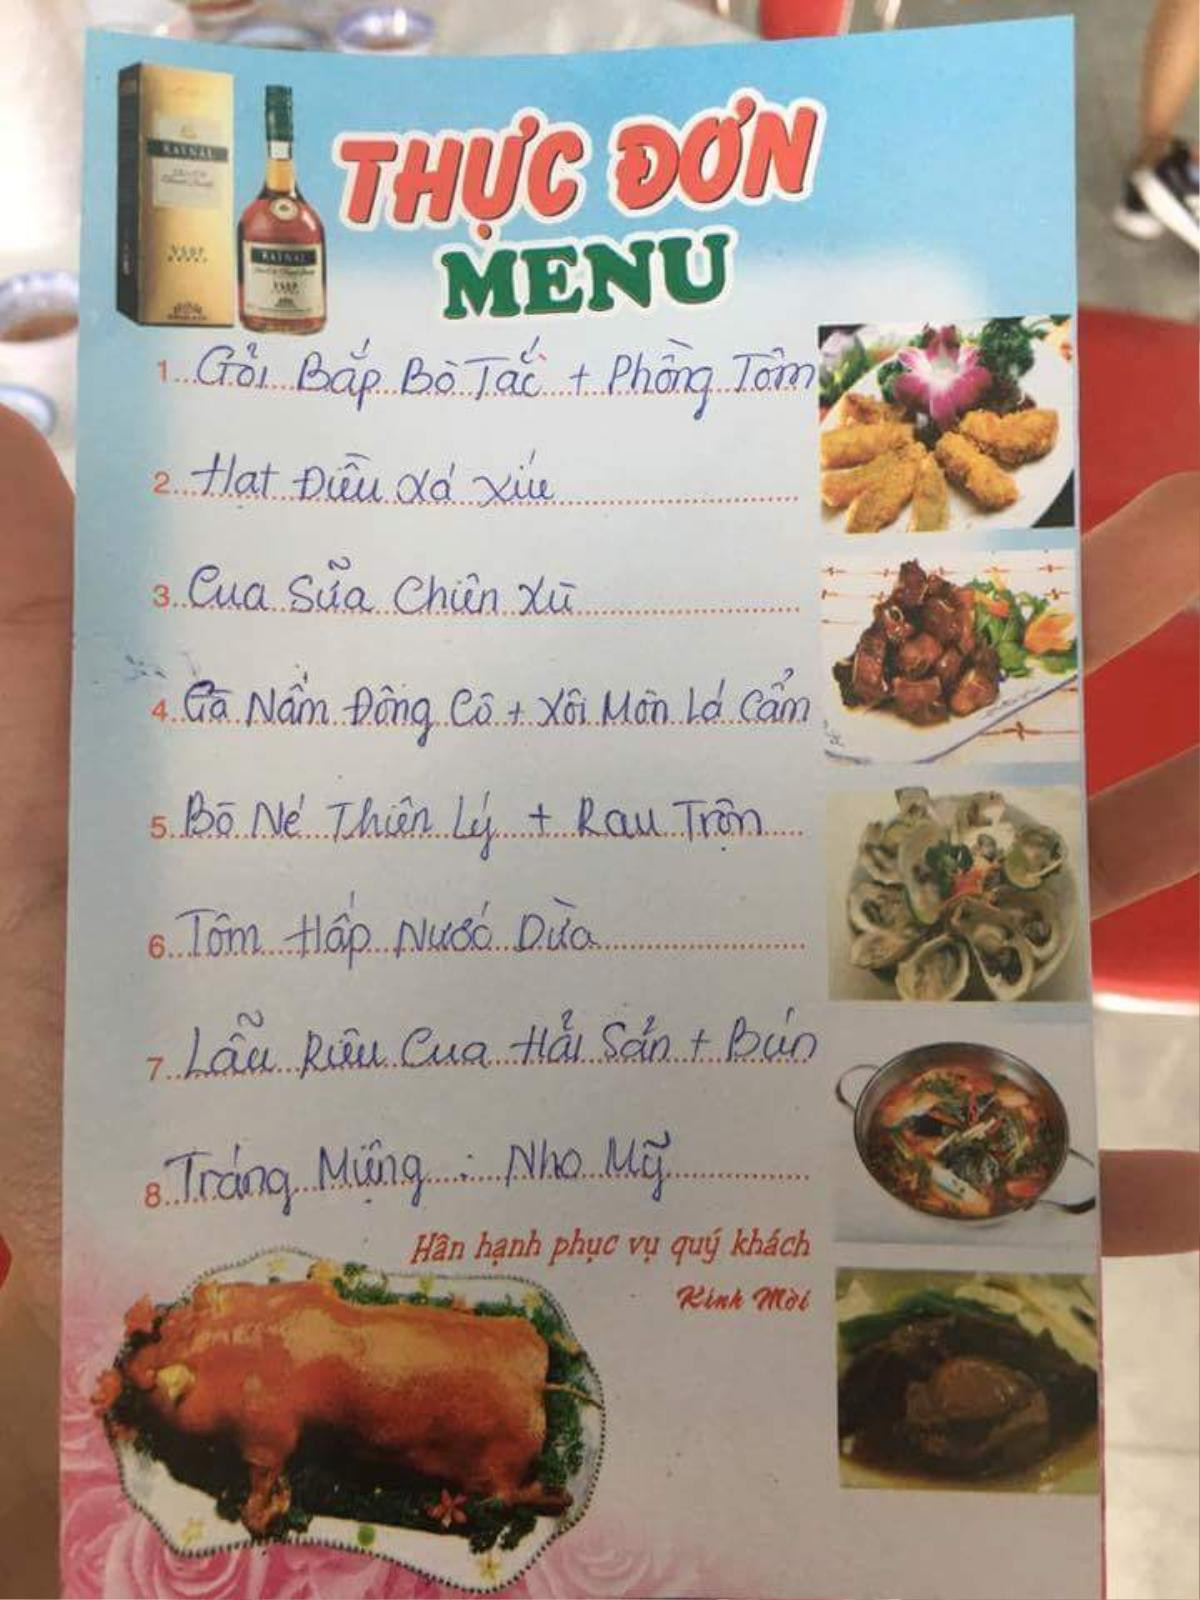 THỰC ĐƠN
MENU
RAYNAL
VSOP
RAYNAL
VSOP
1. Gỏi Bắp Bò Tắc + Phồng Tôm
2. Hạt Điều Xá Xíu
3. Cua Sữa Chiên Xù
4. Gà Nấm Đông Cô + Xôi Môn Lá Cẩm
5. Bò Né Thiên Lý + Rau Trộn
6. Tôm Hấp Nước Dừa
7. Lẩu Riêu Cua Hải Sản + Bún
8. Tráng Miệng : Nho Mỹ
Hân hạnh phục vụ quý khách
Kính Mời